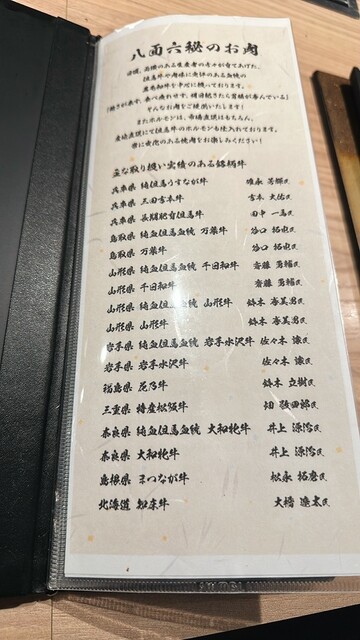 八面六秘のお肉
日頃、高標のある生産者の方々が育てあげた、
但馬牛や肉味に定評のある血統の
黒毛和牛を中心に扱っております。
そんなお肉をご提供いたします！
またホルモンは、市場直送はもちろん、
産地直送にて但馬牛のホルモンも仕入れております。
常に安定のある焼肉をお楽しみください！
主な取り扱い実績のある銘柄牛
兵庫県 純但馬うすなが牛
兵庫県 三田吉本牛 吉本
兵庫県 長期肥育但馬牛 田中 一馬氏
鳥取県 純血但馬血統 万葉牛 谷口 拓也氏
鳥取県 万葉牛 谷口 拓也氏
山形県 純血但馬血統 千日和牛 齋藤 勇輔氏
山形県 千日和牛 齋藤 勇輔氏
山形県 純血但馬血統 山形牛 鈴木 喜美男氏
山形県 山形牛 鈴木 喜美男氏
岩手県 純血但馬血統 岩手水沢牛 佐々木 譲氏
岩手県 岩手水沢牛 佐々木 譲氏
福島県 花乃牛 鈴木 立樹氏
三重県 特産松阪牛 畑 敬四郎氏
奈良県 純血但馬血統 大和牝牛 井上 源治氏
奈良県 大和牝牛 井上 源治氏
島根県 まつなが牛 松永 拓磨氏
北海道 知床牛 大橋 遼太氏